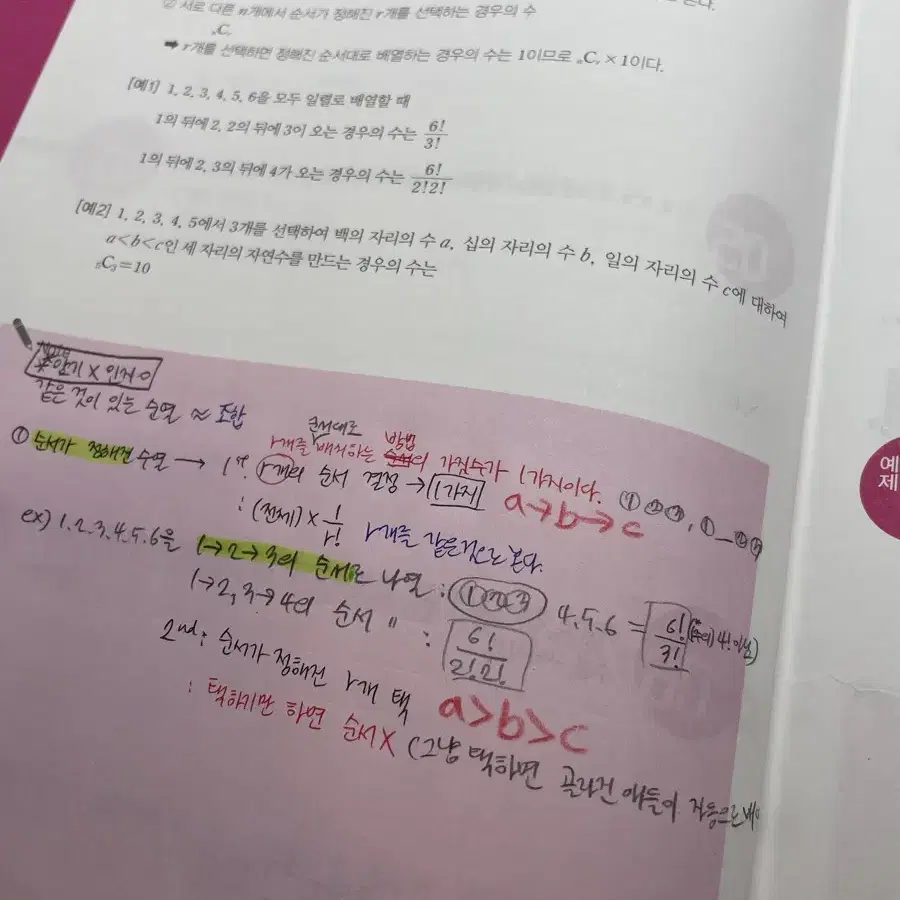 ② 서로 다른 n개에서 순서가 정해진 r개를 선택하는 경우의 수
ₙCᵣ
➡ r개를 선택하면 정해진 순서대로 배열하는 경우의 수는 1이므로 ₙCᵣ × 1이다.
[예1] 1, 2, 3, 4, 5, 6을 모두 일렬로 배열할 때
1의 뒤에 2, 2의 뒤에 3이 오는 경우의 수는 6!/3!
1의 뒤에 2, 3의 뒤에 4가 오는 경우의 수는 6!/2!2!
[예2] 1, 2, 3, 4, 5에서 3개를 선택하여 백의 자리의 수 a, 십의 자리의 수 b, 일의 자리의 수 c에 대하여
a<b<c인 세 자리의 자연수를 만드는 경우의 수는
₅C₃=10
암기 X 인지 O
같은 것이 있는 순열 ≈ 조합
순서대로 방법
r개를 배치하는 의 가짓수가 1가지이다.
① 순서가 정해진 순열 → 1st. r개의 순서 결정 → 1가지 a→b→c ①②③, ①_②③
: (전체) × 1/r! r개를 같은 것으로 본다.
ex) 1.2.3.4.5.6을 1→2→3의 순서로 나열 : ①②③ 4.5.6 = 6!/3! 4!
1→2, 3→4의 순서 〃 : 6!/2!2!
2nd: 순서가 정해진 r개 택 a>b>c
: 택하기만 하면 순서X (그냥 택하면 골라진 애들이 자동으로
예
제